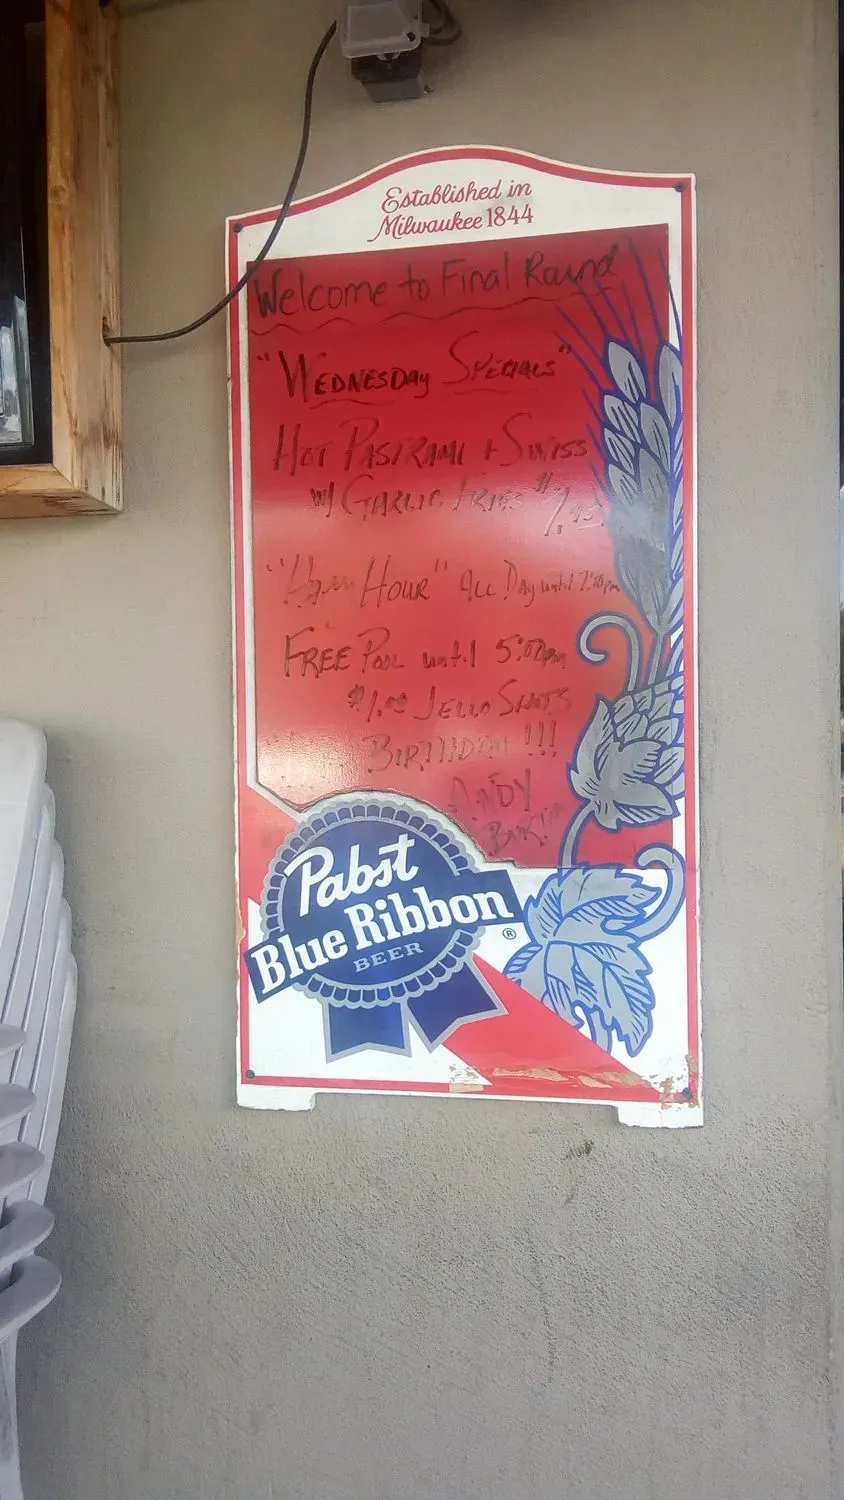 Established in
Milwaukee 1844
Welcome to Final Round
"WEDNESDAY SPECIALS"
HOT PASTRAMI + SWISS
W/ GARLIC FRIES $7.95
"Happy HOUR" ALL DAY until 7:00pm
FREE POOL until 5:00pm
$1.00 JELLO SHOTS
BIRTHDAY !!!
ANDY
Pabst
Blue Ribbon®
BEER